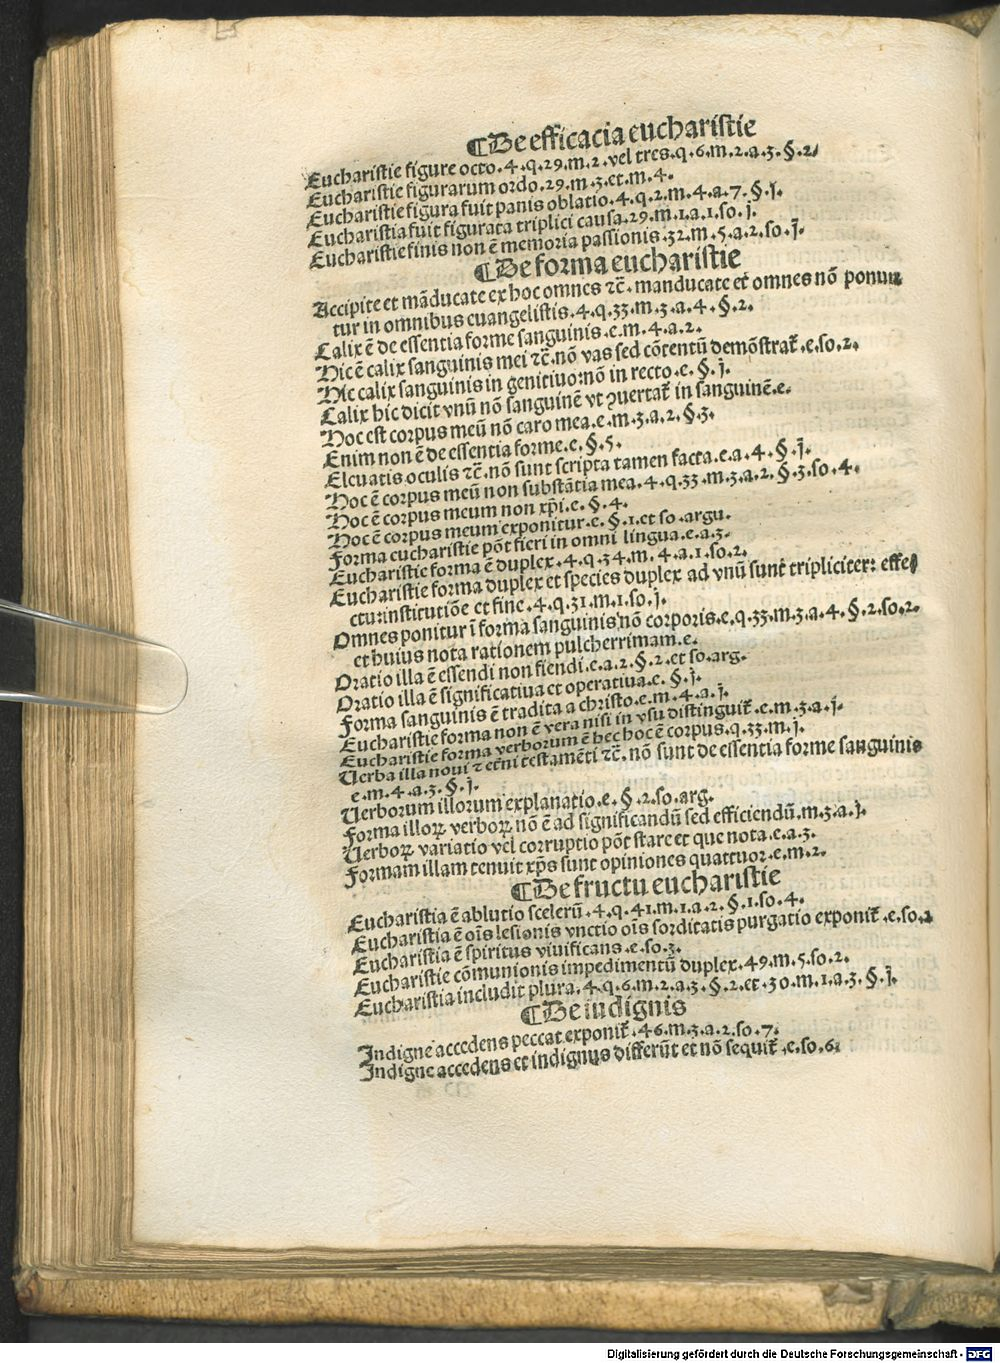 ¶De efficacia eucharistie
Eucharistie figure octo.4.q.29.m.2.vel tres.q.6.m.2.a.3.§.2.
Eucharistie figurarum ordo.29.m.3.et.m.4.
Eucharistie figura fuit panis oblatio.4.q.2.m.4.a.7.§.j.
Eucharistia fuit figurata triplici causa.29.m.1.a.1.so.j.
Eucharistie finis non ē memoria passionis.32.m.5.a.2.so.j.
¶De forma eucharistie
Accipite et māducate ex hoc omnes ⁊c̄. manducate et omnes nō ponun
tur in omnibus euangelistis.4.q.33.m.3.a.4.§.2.
Calix ē de essentia forme sanguinis.e.m.4.a.2.
Hic ē calix sanguinis mei ⁊c̄.nō vas sed cōtentū demōstrat̄.e.so.2.
Hic calix sanguinis in genitiuo:nō in recto.e.§.j.
Calix hic dicit vnū nō sanguinē vt ꝯuertat̄ in sanguinē.e.
Hoc est corpus meū nō caro mea.e.m.3.a.2.§.3.
Enim non ē de essentia forme.e.§.5.
Eleuatis oculis ⁊c̄.nō sunt scripta tamen facta.e.a.4.§.j.
Hoc ē corpus meū non substātia mea.4.q.33.m.3.a.2.§.3.so.4.
Hoc ē corpus meum non xp̄i.e.§.4.
Hoc ē corpus meum exponitur.e.§.1.et so.argu.
Forma eucharistie pōt fieri in omni lingua.e.a.3.
Eucharistie forma ē duplex.4.q.34.m.4.a.1.so.2.
Eucharistie forma duplex et species duplex ad vnū sunt tripliciter: effe
ctu:institutiōe et fine.4.q.31.m.1.so.j.
Omnes ponitur ī forma sanguinis nō corporis.e.q.33.m.3.a.4.§.2.so.2.
et huius nota rationem pulcherrimam.e.
Oratio illa ē essendi non fiendi.e.a.2.§.2.et so.arg.
Oratio illa ē significatiua et operatiua.e.§.j.
Forma sanguinis ē tradita a christo.e.m.4.a.j.
Eucharistie forma non ē vera nisi in vsu distinguit̄.e.m.3.a.j.
Eucharistie forma verborum ē hec hoc ē corpus.q.33.m.j.
Verba illa noui ⁊ et̄ni testamēti ⁊c̄. nō sunt de essentia forme sanguinis
e.m.4.a.3.§.j.
Verborum illorum explanatio.e.§.2.so.arg.
Forma illoꝝ verboꝝ nō ē ad significandū sed efficiendū.m.3.a.j.
Verboꝝ variatio vel corruptio pōt stare et que nota.e.a.3.
Formam illam tenuit xp̄s sunt opiniones quattuor.e.m.2.
¶De fructu eucharistie
Eucharistia ē ablutio scelerū.4.q.41.m.1.a.2.§.1.so.4.
Eucharistia ē oīs lesionis vnctio oīs sorditatis purgatio exponit̄.e.so.2
Eucharistia ē spiritus viuificans.e.so.3.
Eucharistie cōmunionis impedimentū duplex.49.m.5.so.2.
Eucharistia includit plura.4.q.6.m.2.a.3.§.2.et.30.m.1.a.3.§.j.
¶De indignis
Indigne accedens peccat exponit̄.46.m.3.a.2.so.7.
Indigne accedens et indignus differūt et nō sequit̄.e.so.6.
Digitalisierung gefördert durch die Deutsche Forschungsgemeinschaft - DFG